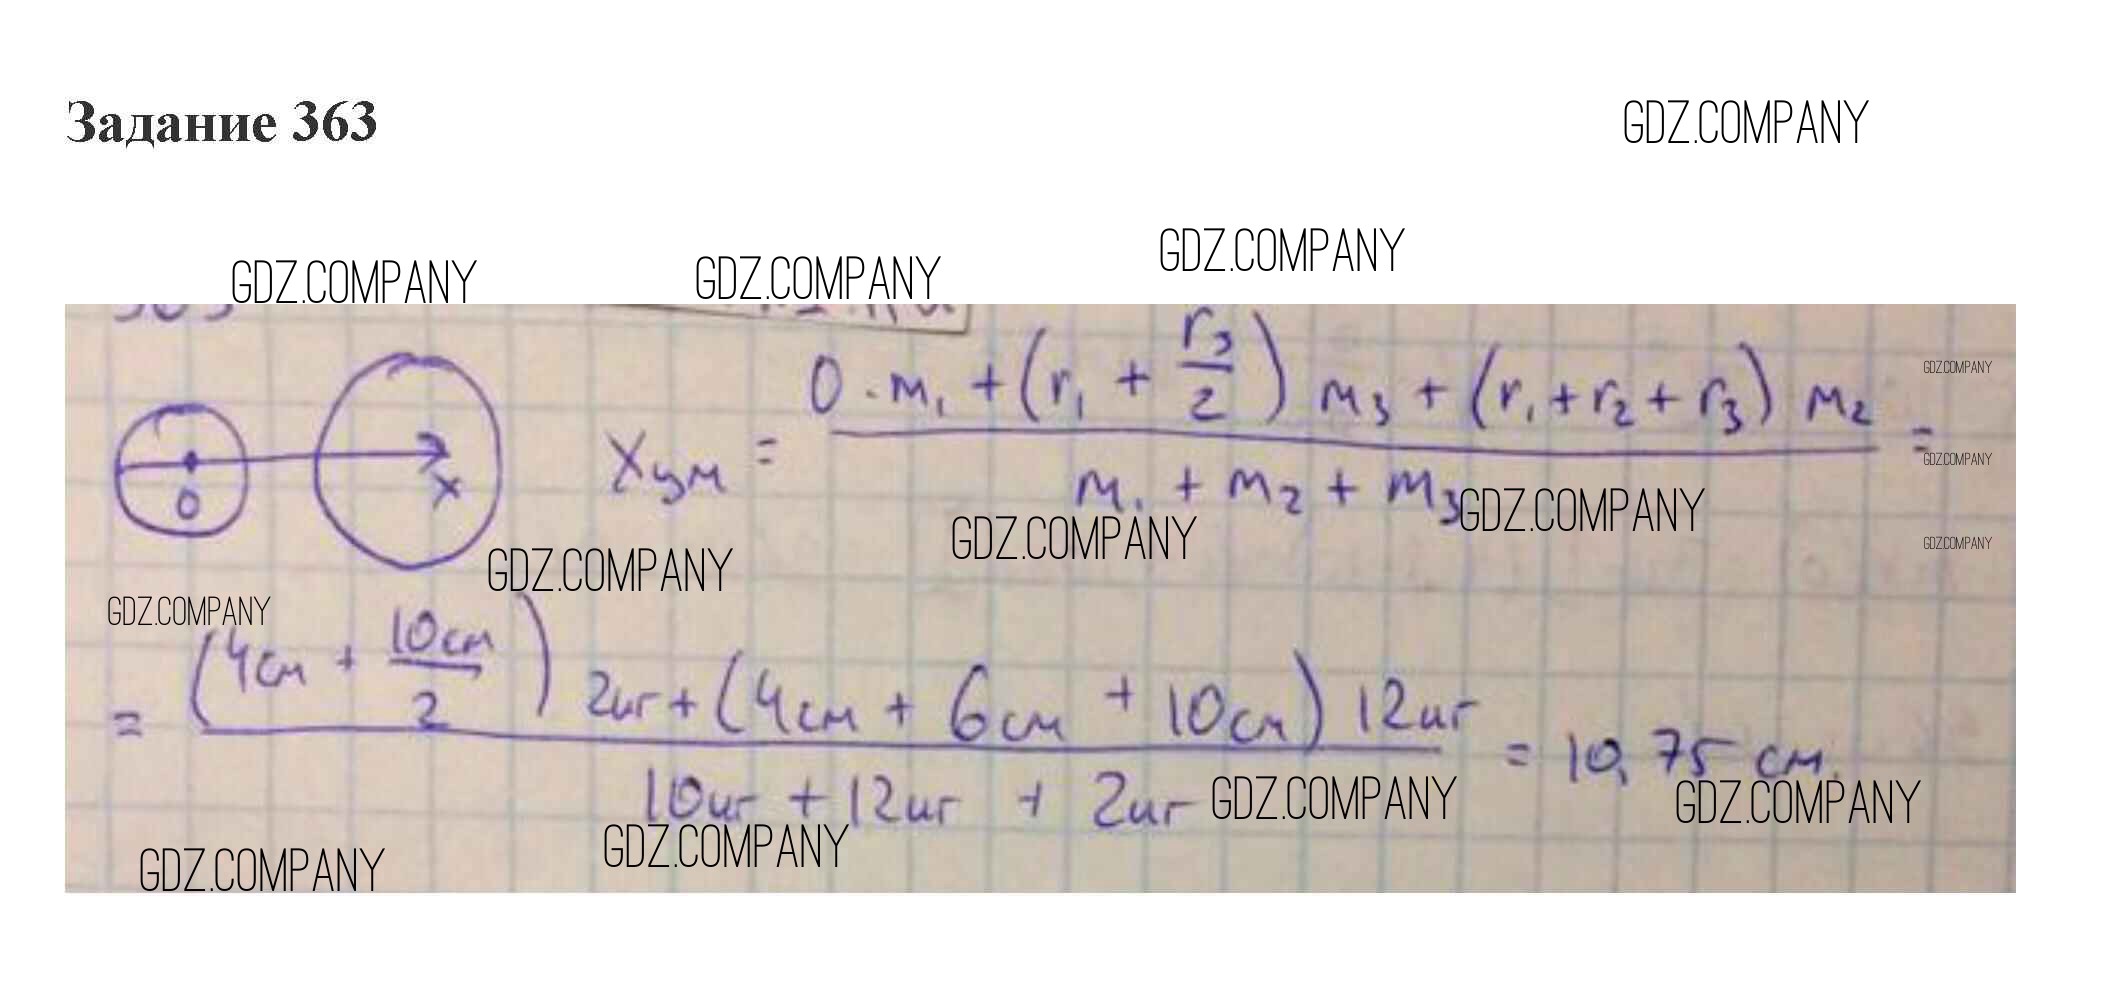 Задание 363
GDZ.COMPANY
GDZ.COMPANY
GDZ.COMPANY GDZ.COMPANY
Xцм = (0 · m₁ + (r₁ + r₃/2) m₃ + (r₁ + r₂ + r₃) m₂) / (m₁ + m₂ + m₃) =
0 x
GDZ.COMPANY
GDZ.COMPANY
GDZ.COMPANY
GDZ.COMPANY GDZ.COMPANY GDZ.COMPANY
GDZ.COMPANY
= ((4см + 10см/2) 2кг + (4см + 6см + 10см) 12кг) / (10кг + 12кг + 2кг) = 10,75 см.
GDZ.COMPANY GDZ.COMPANY
GDZ.COMPANY GDZ.COMPANY